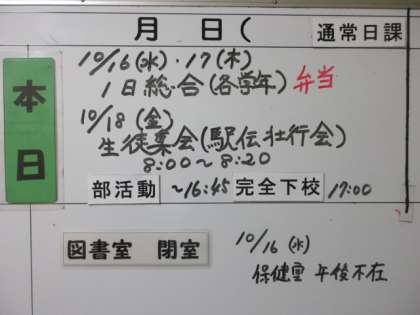 月 日( 通常日課
本日
10/16(水)・17(木)
1日総合(各学年) 弁当
10/18(金)
生徒集会(駅伝壮行会)
8:00~8:20
部活動 ~16:45 完全下校 17:00
図書室 閉室
10/16(水)
保健室 午後不在